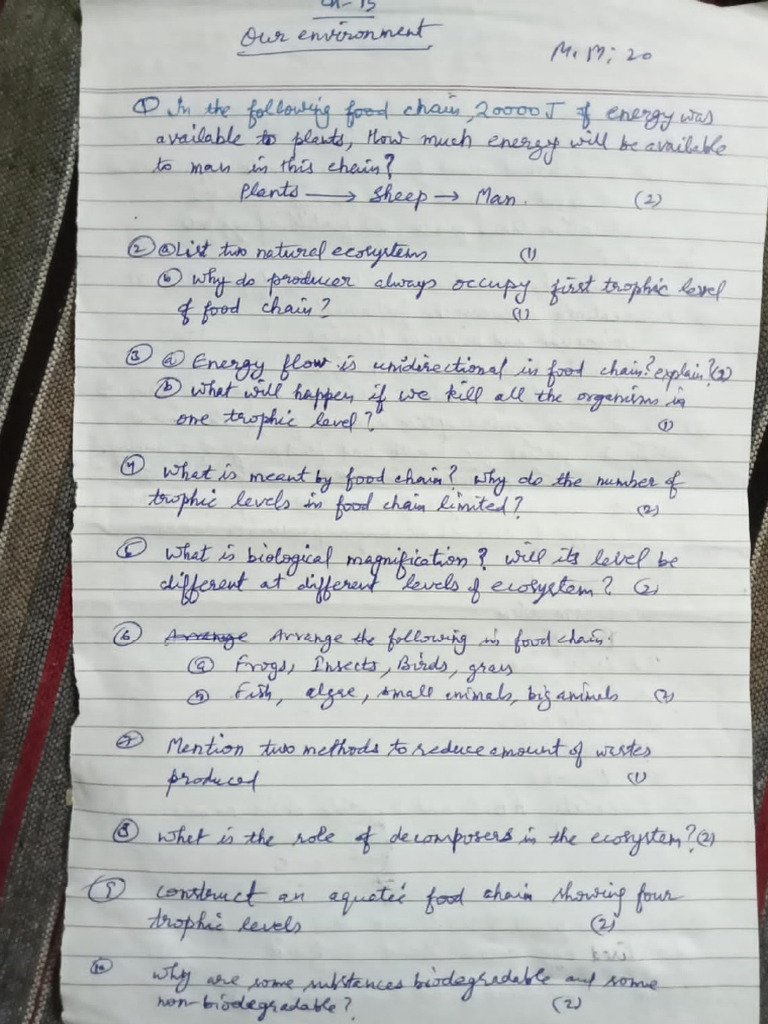 Ch-15
Our environment
M.M; 20
① In the following food chain, 20000J of energy was
available to plants, How much energy will be available
to man in this chain?
Plants → Sheep → Man. (2)
② ⓐ List two natural ecosystems (1)
ⓑ Why do producer always occupy first trophic level
of food chain? (1)
③ ⓐ Energy flow is unidirectional in food chain? explain? (2)
ⓑ What will happen if we kill all the organisms in
one trophic level? ①
④ What is meant by food chain? Why do the number of
trophic levels in food chain limited? (2)
⑤ What is biological magnification? Will its level be
different at different levels of ecosystem? (2)
⑥ Arrange Arrange the following in food chain.
ⓐ Frogs, Insects, Birds, grass
ⓑ Fish, algae, small animals, big animals (2)
⑦ Mention two methods to reduce amount of wastes
produced (1)
⑧ What is the role of decomposers in the ecosystem? (2)
⑨ Construct an aquatic food chain showing four
trophic levels (2)
⑩ Why are some substances biodegradable and some
non-biodegradable? (2)